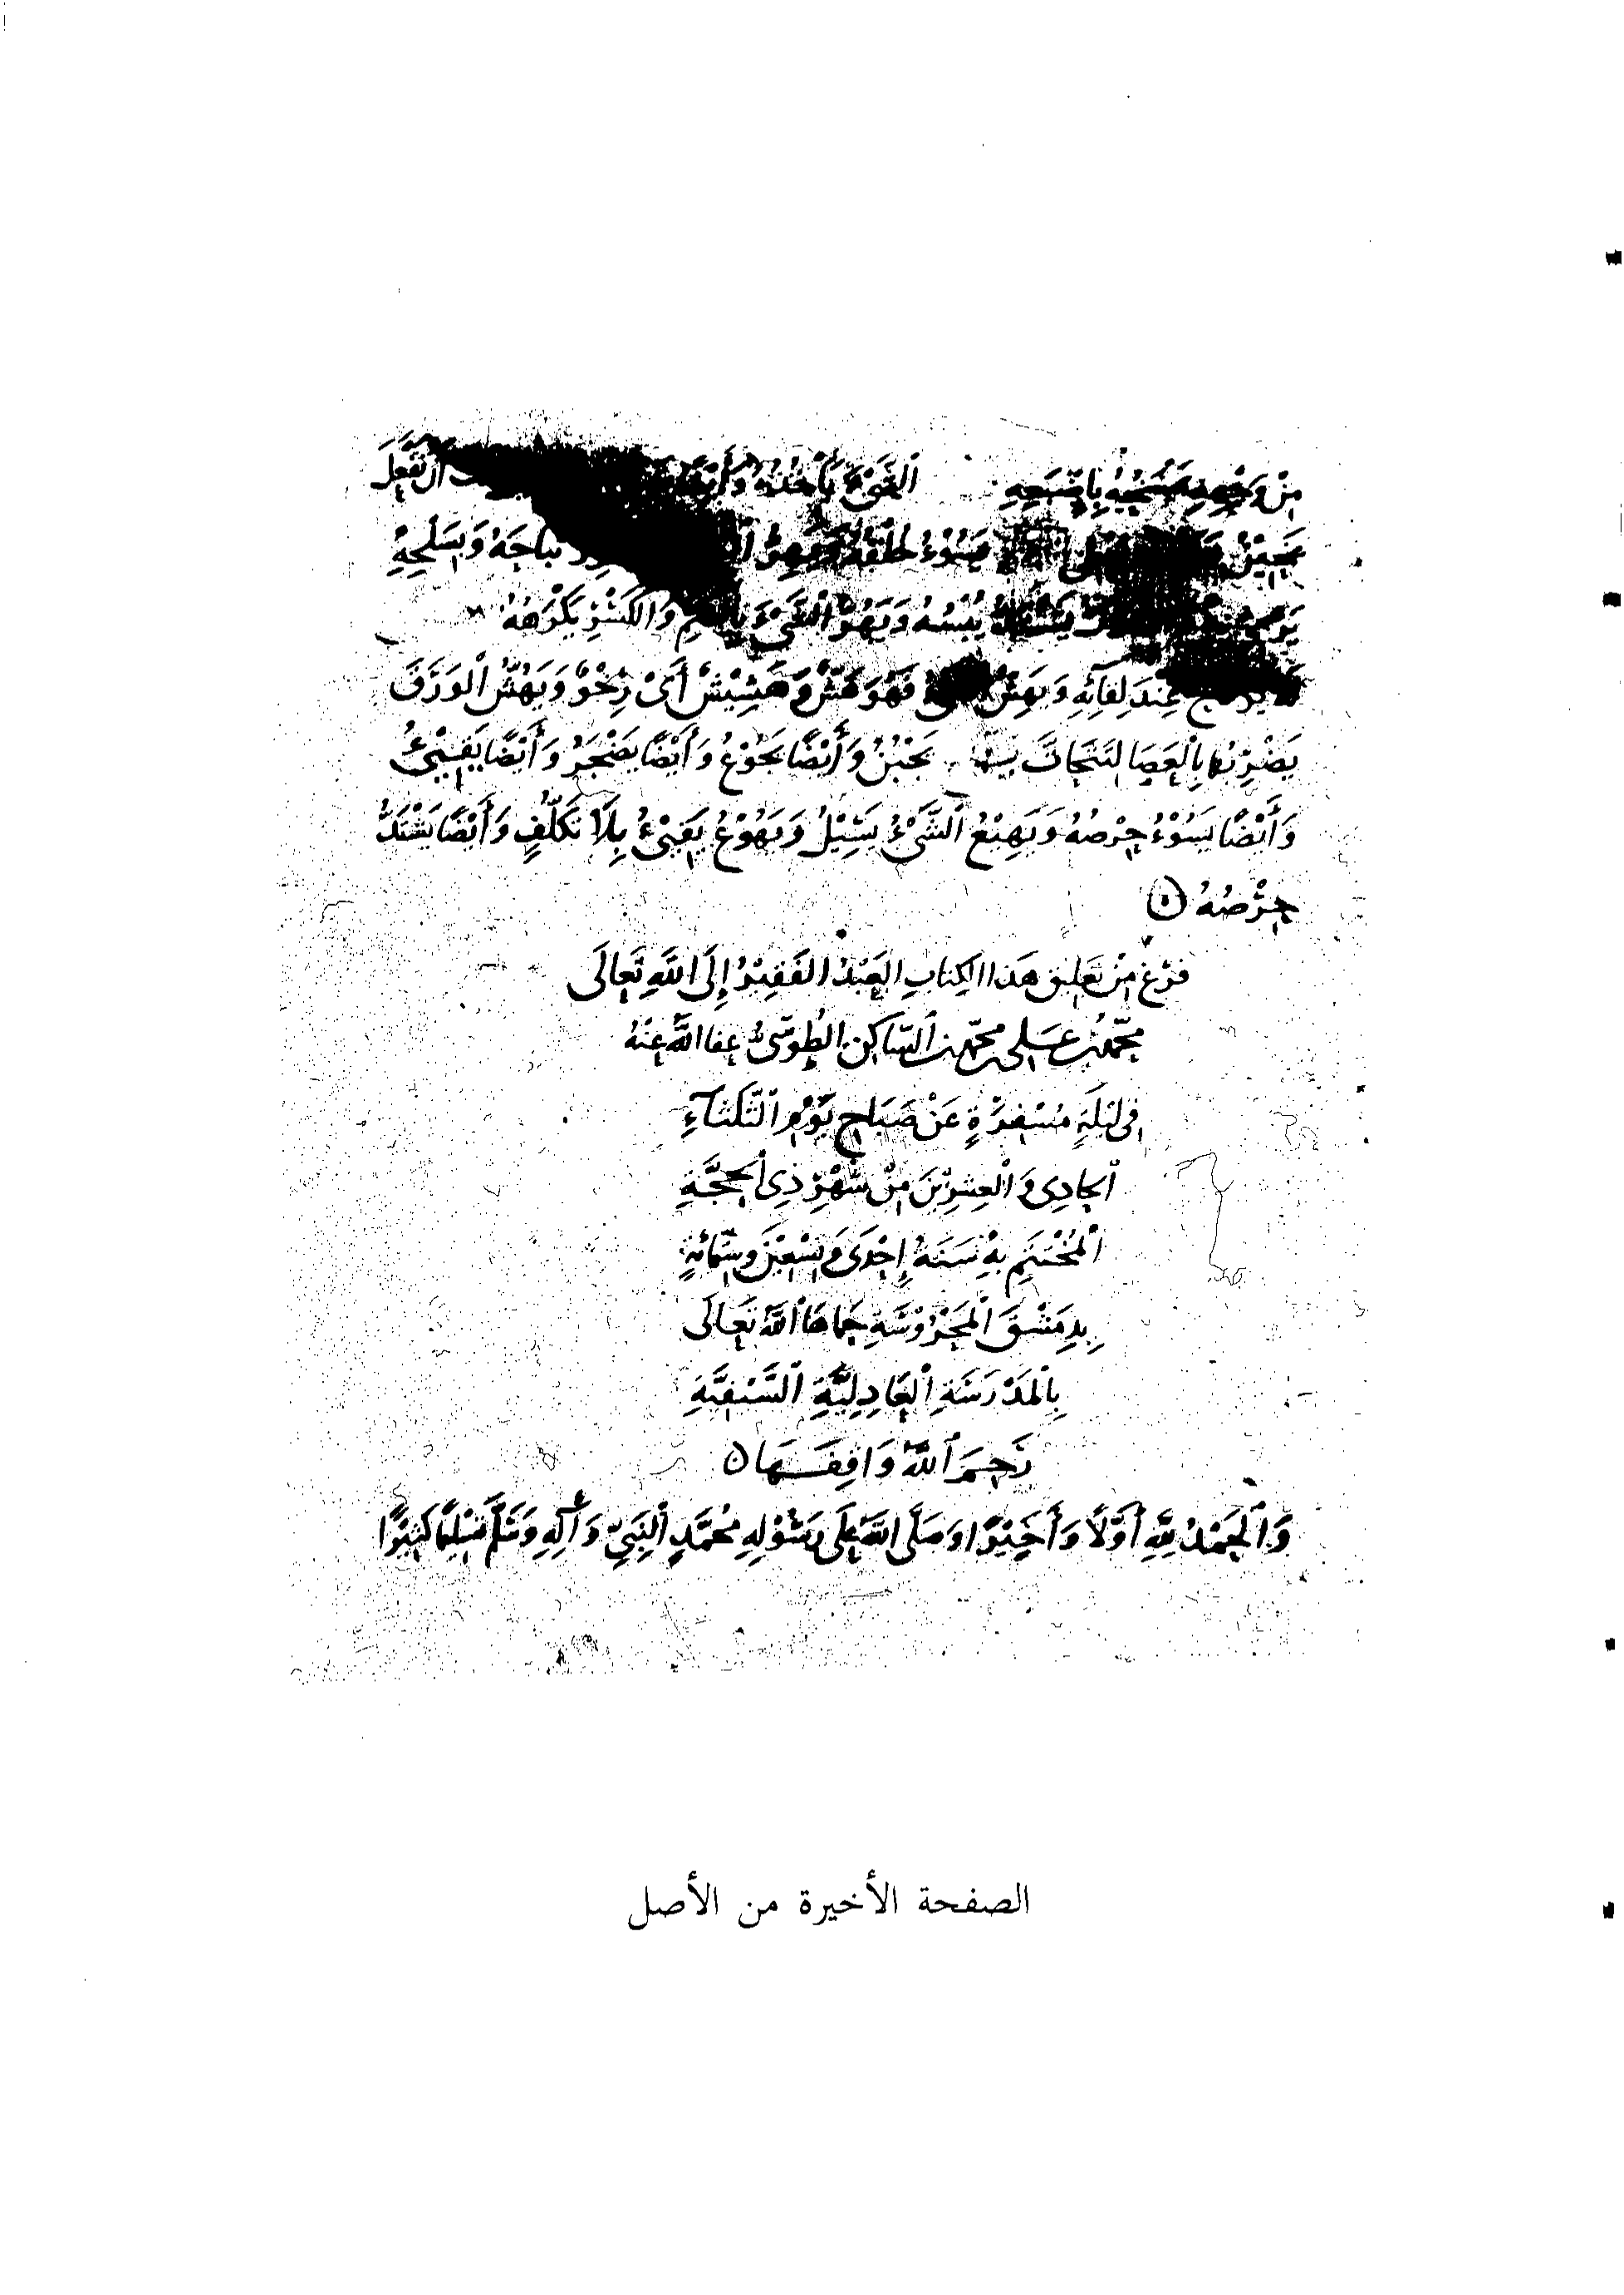 مِنْ وَجْهِهِ بِإِصْبَعِهِ الشَّيْءَ يَأْخُذُهُ وَأَيْضًا أَنْ تَفْعَلَ
يَسُوْءُ خُلُقُهُ وَيَهِرُّ نِبَاحَهُ وَبِسَلْحِهِ
يُبْسُهُ وَيَهُرُّ الشَّيْءَ بِالضَّمِ وَالكَسْرِ يَكْرَهُهُ
عِنْدَ لِقَائِهِ وَيَهِشُّ فَهُوَ هَشٌّ وَهَشِيْشٌ أَىْ رِخْوٌ وَيَهُشُّ الْوَرَقَ
يَضْرِبُهَا بِالْعَصَا لِتَتَحَاتَّ يَجْبُنُ وَأَيْضًا يَجُوْعُ وَأَيْضًا يَضْجَرُ وَأَيْضًا يَقِيْءُ
وَأَيْضًا يَسُوْءُ حِرْصُهُ وَيَهِيْعُ الشَّيْءُ يَسِيْلُ وَيَهُوْعُ يَقِيْءُ بِلَا تَكَلُّفٍ وَأَيْضًا يَشْتَدُّ
حِرْصُهُ
فَرَغَ مِنْ تَعْلِيقِ هَذَا الكِتَابِ العَبْدُ الفَقِيْرُ إِلَى اللَّهِ تَعَالَى
مُحَمَّدُ بْنُ عَلِى بْنِ مُحَمَّد بْنِ السَّاكِنِ الطُوسِىُّ عفا اللَّهُ عَنْهُ
فِى لَيْلَةٍ مُسْفِرَةٍ عَنْ صَبَاحِ يَوْمِ الثَّلَثَآءِ
الْحَادِى وَالْعِشْرِيْنَ مِنْ شَهْرِ ذِى الْحِجَّةِ
الْمُخْتَتَمِ بِهِ سَنَةُ إِحْدَى وَتِسْعِيْنَ وَسِتِّمِائَةٍ
بِدِمَشْقَ الْمَحْرُوْسَةِ حَمَاهَا اللَّهُ تَعَالَى
بِالْمَدْرَسَةِ الْعَادِلِيَّةِ السَّيْفِيَّةِ
رَحِمَ اللَّهُ وَاقِفَهَا
وَالْحَمْدُ لِلَّهِ أَوَّلًا وَأَخِيْرًا وَصَلَّى اللَّهُ عَلَى رَسُوْلِهِ مُحَمَّدٍ النَّبِيِّ وَآلِهِ وَسَلَّمَ تَسْلِيْمًا كَثِيْرًا
الصفحة الأخيرة من الأصل